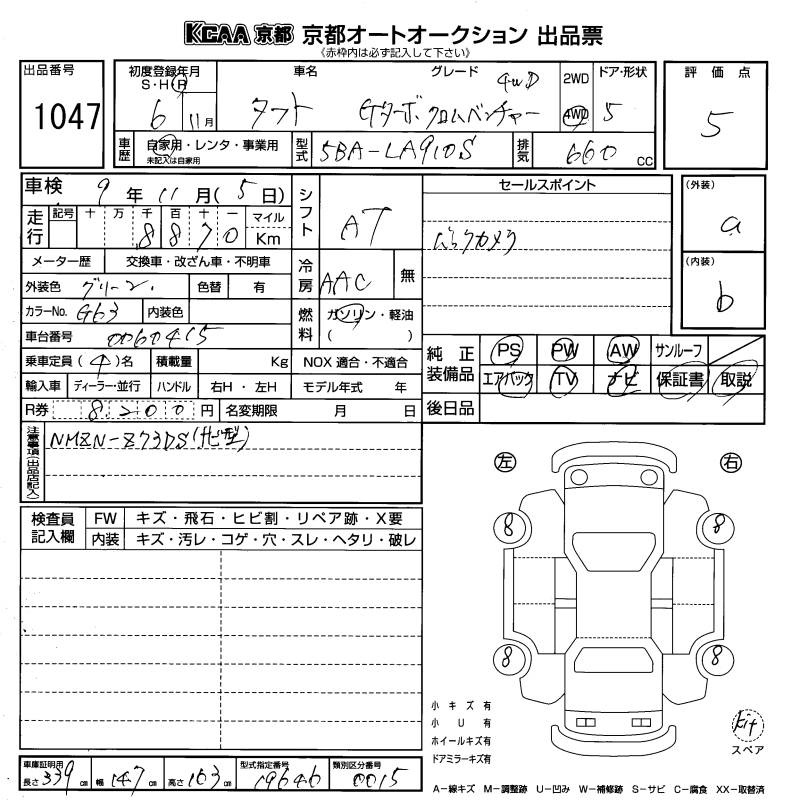 KCAA 京都 京都オートオークション 出品票
《赤枠内は必ず記入して下さい》
出品番号 1047
初度登録年月 S・H・R 6年11月
車名 タフト
グレード Gターボ クロムベンチャー 4WD
2WD 4WD
ドア・形状 5
評価点 5
車歴 自家用・レンタ・事業用 未記入は自家用
型式 5BA-LA910S
排気 660 cc
車検 9年11月(5日)
シフト AT
セールスポイント
バックカメラ
(外装) a
(内装) b
走行 記号 十 万 千 百 十 一 マイル Km
8870
メーター歴 交換車・改ざん車・不明車
冷房 AAC 無
外装色 グリーン 色替 有
カラーNo. G63 内装色
燃料 ガソリン・軽油 ( )
車台番号 0060415
乗車定員(4)名 積載量 Kg NOX適合・不適合
輸入車 ディーラー・並行 ハンドル 右H・左H モデル年式 年
純正装備品 PS PW AW サンルーフ
エアバック TV ナビ 保証書 取説
R券 8200円 名変期限 月 日
後日品
注意事項(出品店記入) NMZN-Z73DS(ナビ型)
検査員記入欄 FW キズ・飛石・ヒビ割・リペア跡・X要
内装 キズ・汚レ・コゲ・穴・スレ・ヘタリ・破レ
左 右
8 8
8 8
小キズ有
小U有
ホイールキズ有
ドアミラーキズ有
kit
スペア
車庫証明用 長さ 339cm 幅 147cm 高さ 163cm 型式指定番号 19646 類別区分番号 0015
A-線キズ M-調整跡 U-凹み W-補修跡 S-サビ C-腐食 XX-取替済